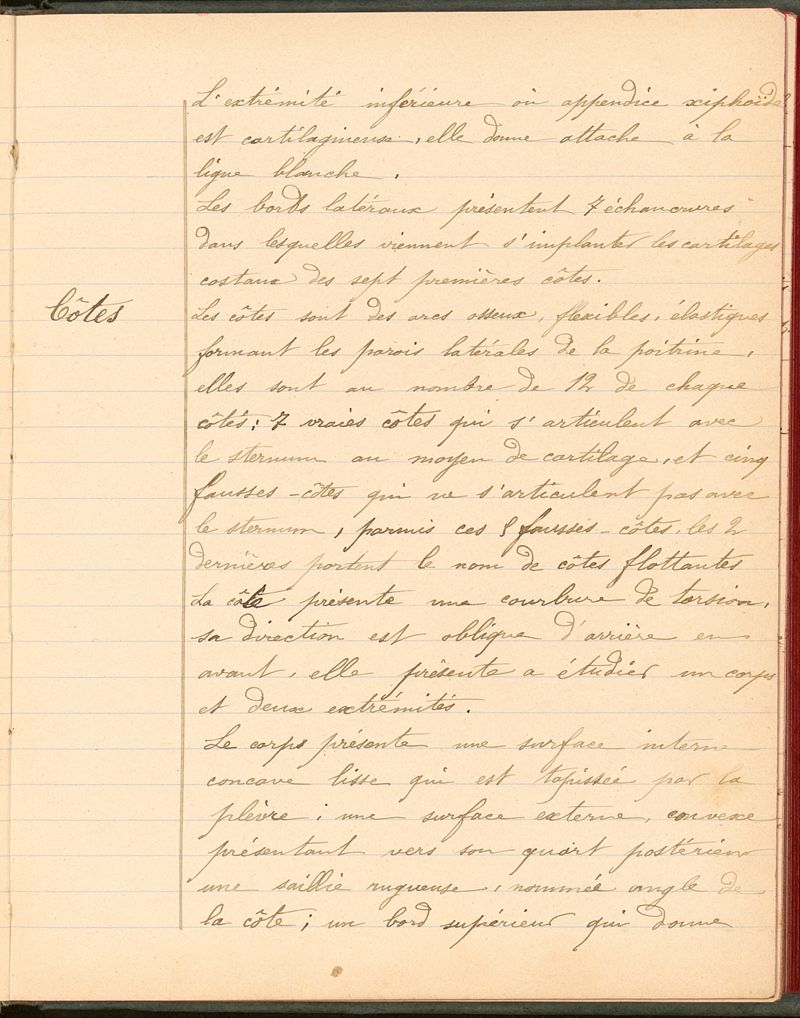 L'extrémité inférieure ou appendice xiphoïde
est cartilagineuse, elle donne attache à la
ligne blanche.
Les bords latéraux présentent 7 échancrures
dans lesquelles viennent s'implanter les cartilages
costaux des sept premières côtes.
Côtes
Les côtes sont des arcs osseux, flexibles, élastiques
formant les parois latérales de la poitrine,
elles sont au nombre de 12 de chaque
côtés; 7 vraies côtes qui s'articulent avec
le sternum au moyen de cartilage, et cinq
fausses-côtes qui ne s'articulent pas avec
le sternum, parmis ces 5 fausses-côtes, les 2
dernières portent le nom de côtes flottantes
La côte présente une courbure de torsion,
sa direction est oblique d'arrière en
avant, elle présente a étudier un corps
et deux extrémités.
Le corps présente une surface interne
concave lisse qui est tapissée par la
plèvre; une surface externe, convexe
présentant vers son quart postérieur
une saillie rugueuse, nommée angle de
la côte; un bord supérieur qui donne